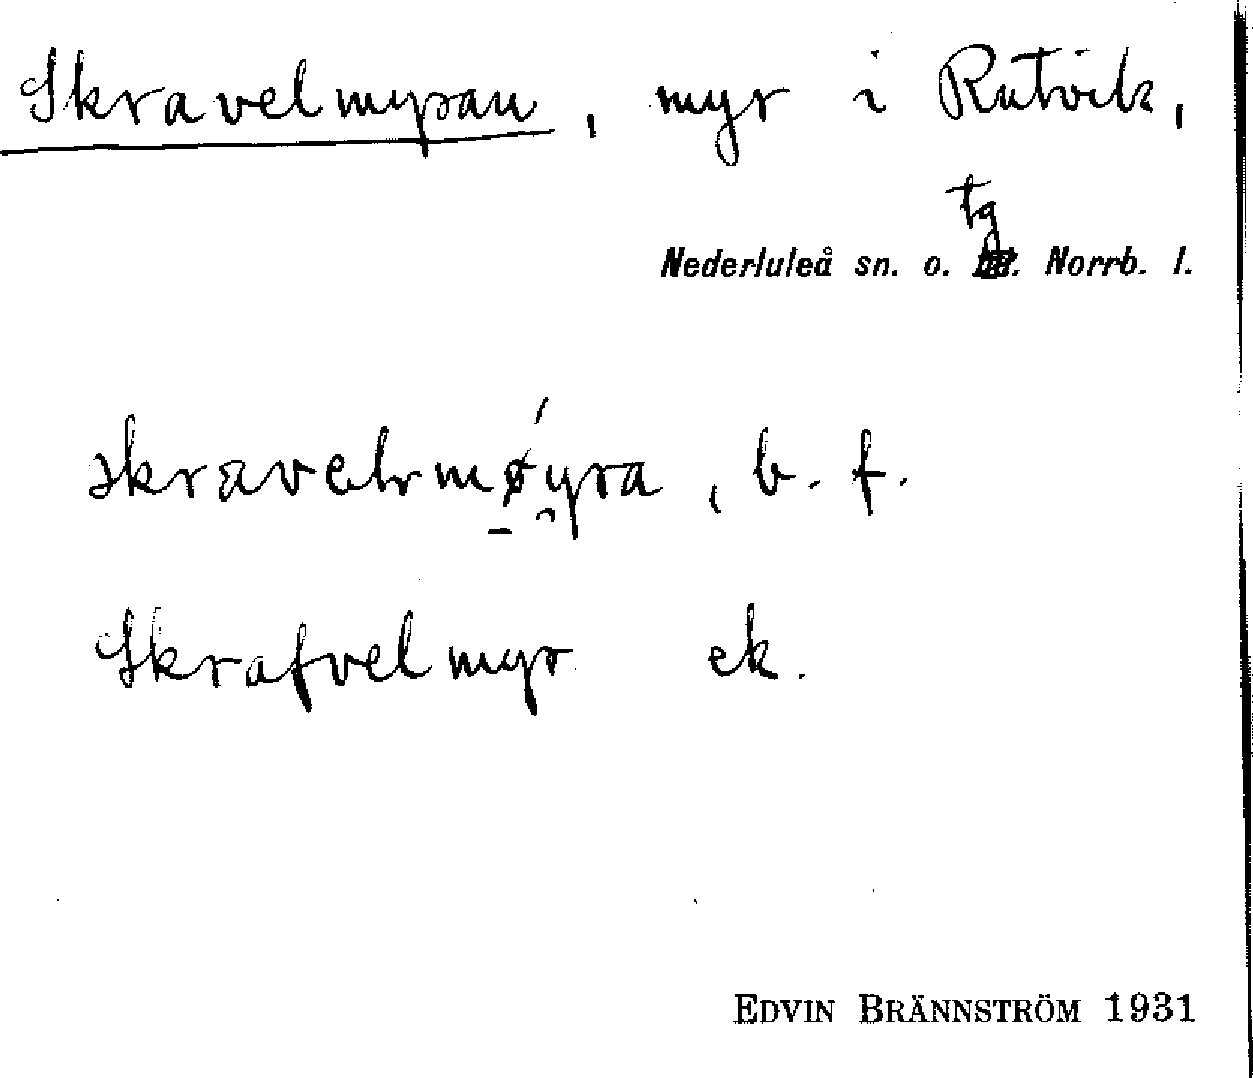 Skravelmyran, myr i Rutvik,
tg
Nederluleå sn. o. Norrb. l.
skravelmøyra, b. f.
Skrafvelmyr ek.
EDVIN BRÄNNSTRÖM 1931